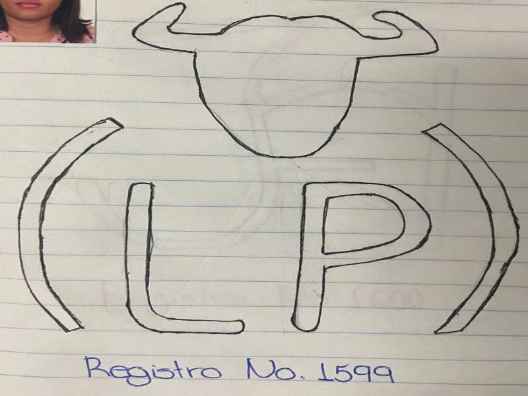 ( L P )
Registro No. 1599